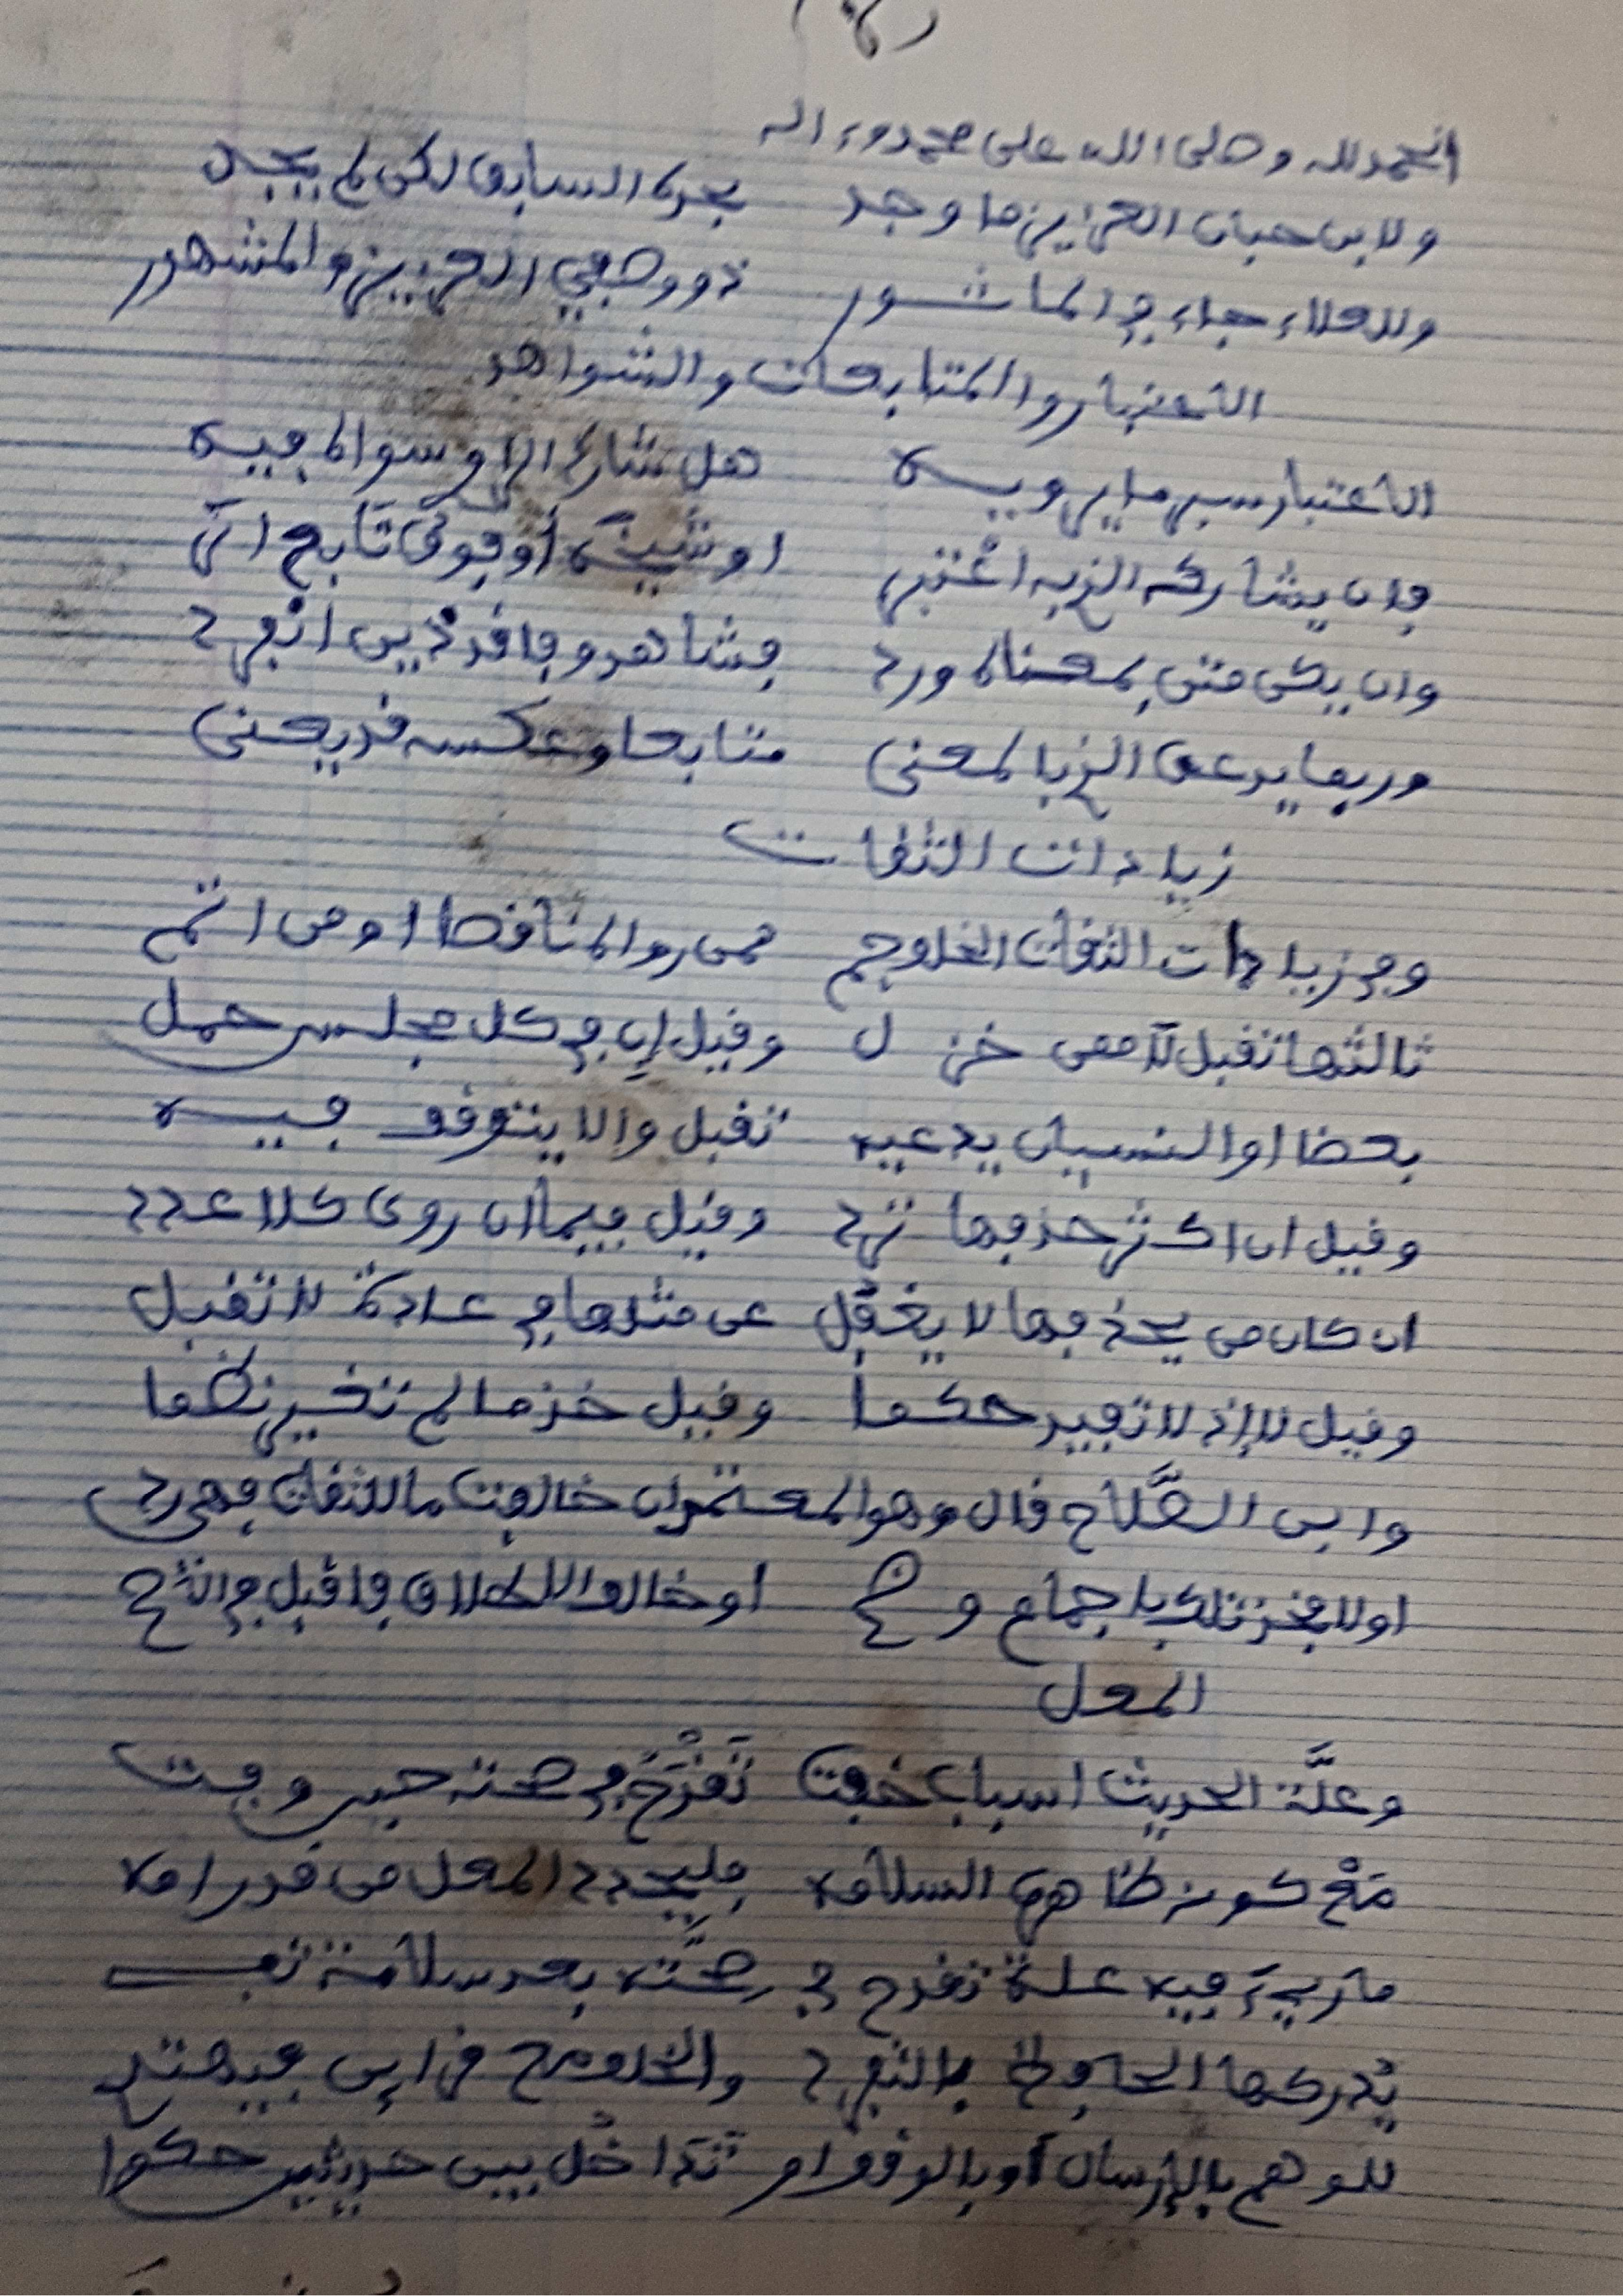 الحمد لله وصلى الله على محمد وءاله
ولابن حبان العزيز ما وجد بحده السابق لكن لم يجد
وللعلاء جاء في المأثور ذو وصفي العزيز والمشهور
الاعتبار والمتابعات والشواهد
الاعتبار سبر ما يرويه هل شارك الراو سواه فيه
فإن يشاركه الذي اعتبر او شيخه أو فوق تابع اثر
وان يكن متن بمعناه ورد فشاهد وفاقد ذين انفرد
وربما يدعى الذي بالمعنى متابعا وعكسه قد يعنى
زيادات الثقات
وفي زيادات الثقات الخلو جم ممن رواه ناقصا او من اتم
ثالثها تقبل لا ممن خزل وقيل إن في كل مجلس حمل
بعضا او النسيان يدعيه تقبل والا يتوقف فيه
وقيل ان اكثر حذفها ترد وقيل فيما ان روى كلا عدد
ان كان من يحذفها لا يغفل عن مثلها في عادة لا تقبل
وقيل لا إذ لا تفيد حكما وقيل خذ ما لم تغير نظما
وابن الصلاح قال وهو المعتمد ان خالفت ما للثقات فهي رد
اولا فخذ تلك بإجماع وضح او خالف الاطلاق فاقبل في الاصح
المعل
وعلة الحديث اسباب خفت تقدح في صحته حين وفت
مع كونه ظاهره السلامه فليحدد المعل من قد رامه
ما ريء فيه علة تقدح في صحته بعد سلامة تفي
يدركها الحافظ بالتفرد والخلو مع قرائن فيهتد
للوهم بالإرسال أو بالوقف او تداخل بين حديثين حكوا